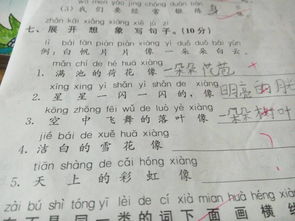 (3)我们要经常锻炼身
zhǎn kāi xiǎng xiàng xiě jù zi
七、展开想象写句子。(10分)
lì bái fān piàn piàn xiàng yì duǒ duǒ bái yún
例:白帆片片像一朵朵白云。
mǎn chí de hé huā xiàng
1. 满池的荷花像一朵花苞
xīng xing yì shǎn yì shǎn de xiàng
2. 星星一闪一闪的,像明亮
kōng zhōng fēi wǔ de luò yè xiàng
3. 空中飞舞的落叶像
jié bái de xuě huā xiàng
4. 洁白的雪花像
tiān shàng de cǎi hóng xiàng
5. 天上的彩虹像
zài bú shì tóng yí lèi de cí xià mian huà héng xiàn
在不是同一类的词下面画横